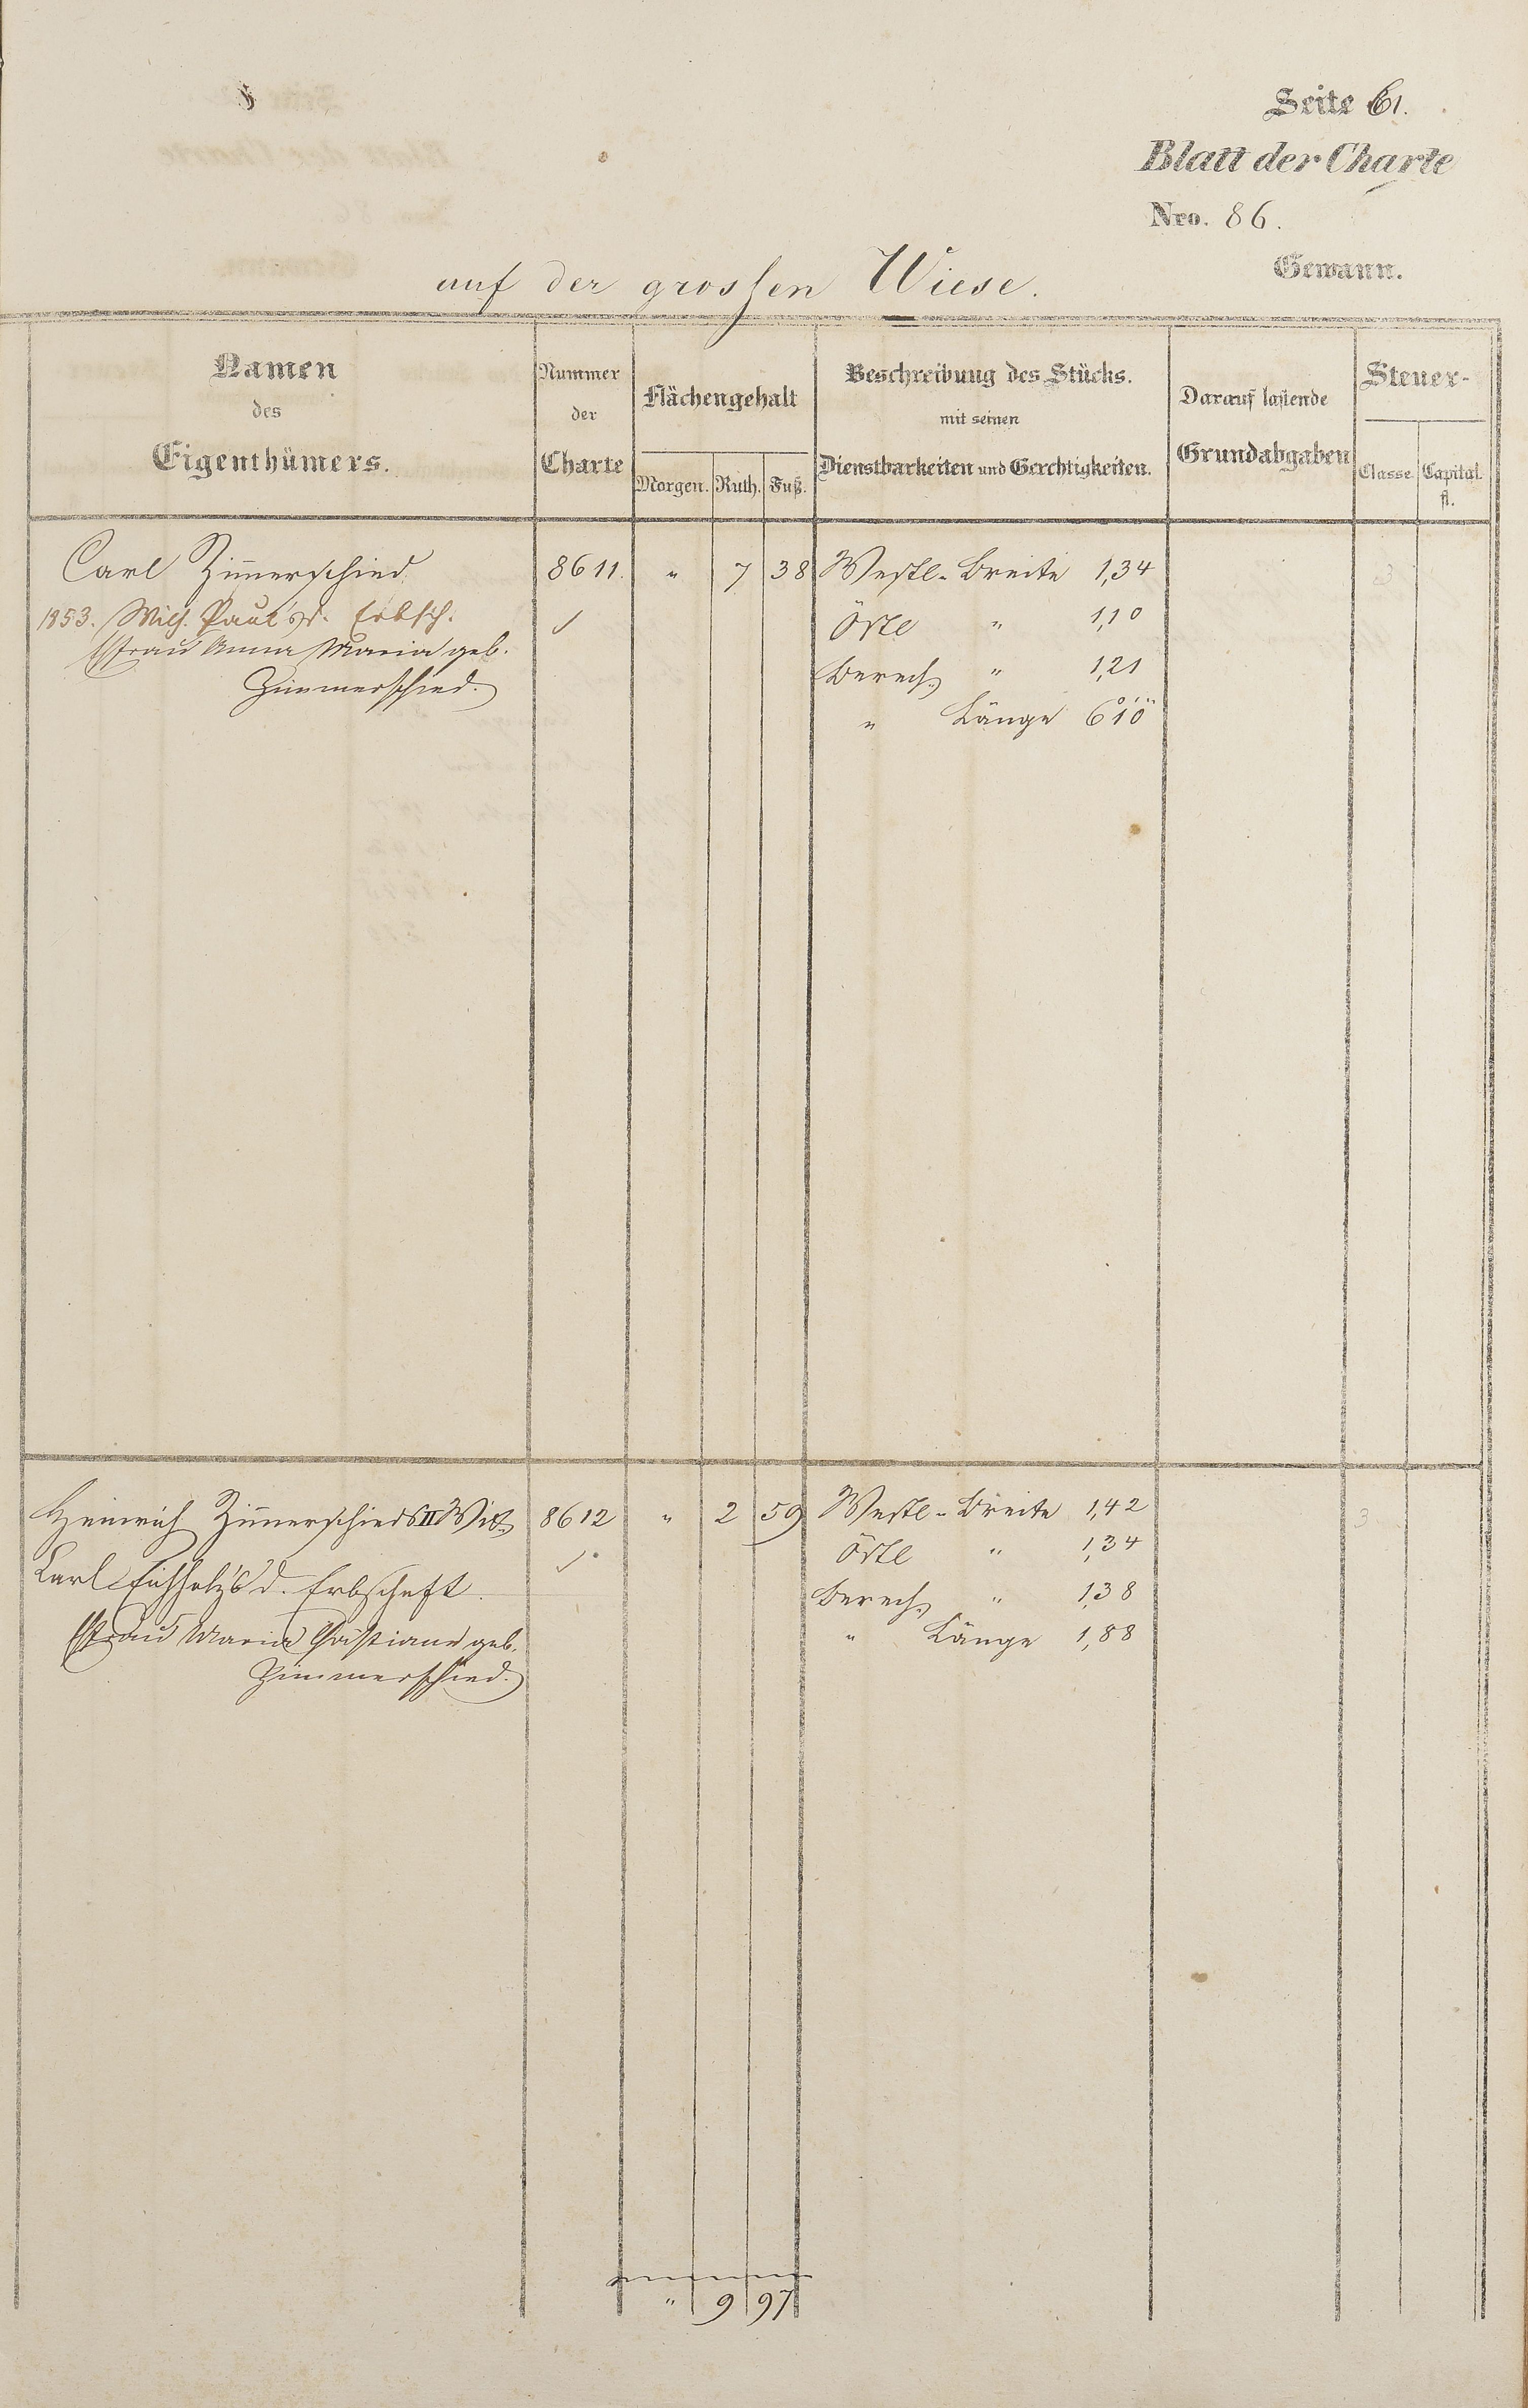 Seite 61.
Blatt der Charte
Nro. 86.
Gewann.
auf der grossen Wiese.
Namen
des
Eigenthümers.
Nummer
der
Charte
Flächengehalt
Morgen. Ruth. Fuß.
Beschreibung des Stücks.
mit seinen
Dienstbarkeiten und Gerechtigkeiten.
Darauf lastende
Grundabgaben
Steuer-
Classe. Capital.
fl.
Carl Zim̄erschied. 8611. " 7 38 Westl. Breite 1,34
1853. Wilh. Paul's d. Erbsch. ✓ Östl " 1,10
Efrau Anna Maria geb. Berech. " 1,21
Zimmerschied. " Länge 6°1'0"
3
Heinrich Zim̄erschieds II Wit. 8612 " 2 59 Westl. Breite 1,42 3
Carl Eichholz's d. Erbschaft. ✓ Östl " 1,34
Efrau Maria geb. Berech. " 1,38
Zimmerschied. " Länge 1,88
" 9 97